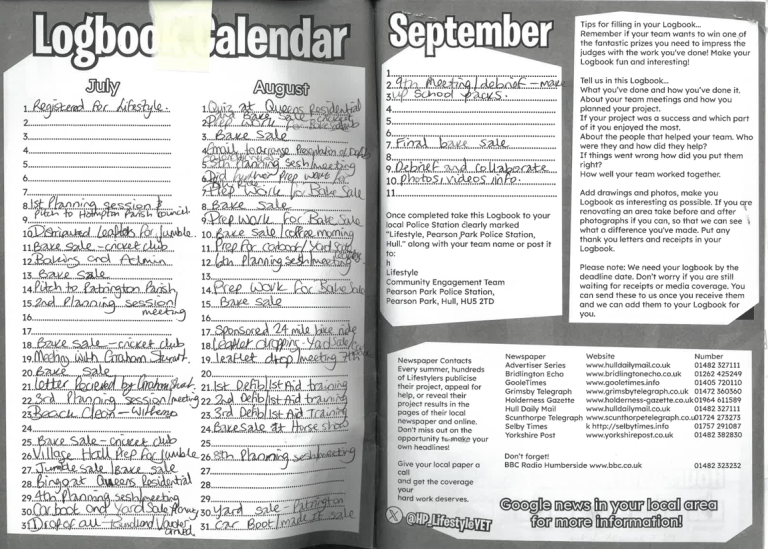 Logbook Calendar
July
1. Registered for Lifestyle.
2.
3.
4.
5.
6.
7.
8. 1st Planning session &
9. Pitch to Hollym Parish Council.
10. Distributed leaflets for Jumble.
11. Bake sale - cricket club
12. Baking and Admin
13. Bake Sale
14. Pitch to Patrington Parish
15. 2nd Planning session/
meeting
16.
17.
18. Bake Sale - cricket club
19. Meeting with Graham Stuart.
20. Bake Sale
21. Letter Received by Graham Stuart.
22. 3rd Planning session/meeting
23. Beach Clean - Withernsea
24.
25. Bake Sale - cricket club
26. Village Hall Prep for Jumble
27. Jumble Sale/Bake Sale
28. Bingo at Queens Residential
29. 4th Planning sesh/meeting
30. Car boot and Yard Sale
31. Drop of all
August
1. Quiz at Queens Residential
2. Prep Work for
3. Bake Sale
4. Email to arrange Presentation of
5. 5th Planning sesh/meeting
6. Did further Prep work for
7. Prep Work for Bake Sale
8. Bake Sale
9. Prep Work for Bake Sale
10. Bake Sale/coffee morning
11. Prep for carboot/Yard Sale
12. 6th Planning sesh/meeting
13.
14. Prep Work for Bake Sale
15. Bake Sale
16.
17. Sponsored 24 mile bike ride
18. leaflet dropping - Yard Sale
19. leaflet drop/meeting 7th
20.
21. 1st Defib/1st Aid training
22. 2nd Defib/1st Aid training
23. 3rd Defib/1st Aid Training
24. Bake Sale at Horse show
25.
26. 8th Planning sesh/meeting
27.
28.
29.
30. Yard sale - Patrington
31. Car Boot/ sale
September
1.
2. 9th Meeting/debrief - make
3. up School packs.
4.
5.
6.
7. Final bake sale
8.
9. Debrief and collaborate
10. Photos, videos, info.
11.
Once completed take this Logbook to your
local Police Station clearly marked
"Lifestyle, Pearson Park Police Station,
Hull." along with your team name or post it
to:
h
Lifestyle
Community Engagement Team
Pearson Park Police Station,
Pearson Park, Hull, HU5 2TD
Tips for filling in your Logbook...
Remember if your team wants to win one of
the fantastic prizes you need to impress the
judges with the work you've done! Make your
Logbook fun and interesting!
Tell us in this Logbook...
What you've done and how you've done it.
About your team meetings and how you
planned your project.
If your project was a success and which part
of it you enjoyed the most.
About the people that helped your team. Who
were they and how did they help?
If things went wrong how did you put them
right?
How well your team worked together.
Add drawings and photos, make you
Logbook as interesting as possible. If you are
renovating an area take before and after
photographs if you can, so that we can see
what a difference you've made. Put any
thank you letters and receipts in your
Logbook.
Please note: We need your logbook by the
deadline date. Don't worry if you are still
waiting for receipts or media coverage. You
can send these to us once you receive them
and we can add them to your Logbook for
you.
Newspaper Contacts
Every summer, hundreds
of Lifestylers publicise
their project, appeal for
help, or reveal their
project results in the
pages of their local
newspaper and online.
Don't miss out on the
opportunity to make your
own headlines!
Give your local paper a
call
and get the coverage
your
hard work deserves.
Newspaper Website Number
Advertiser Series www.hulldailymail.co.uk 01482 327111
Bridlington Echo www.bridlingtonecho.co.uk 01262 425249
GooleTimes www.gooletimes.info 01405 720110
Grimsby Telegraph www.grimsbytelegraph.co.uk 01472 360360
Holderness Gazette www.holderness-gazette.co.uk 01964 611589
Hull Daily Mail www.hulldailymail.co.uk 01482 327111
Scunthorpe Telegraph www.scunthorpetelegraph.co.uk 01724 273273
Selby Times k http://selbytimes.info 01757 291087
Yorkshire Post www.yorkshirepost.co.uk 01482 382830
Don't forget!
BBC Radio Humberside www.bbc.co.uk 01482 323232
X @HP_LifestyleVET
Google news in your local area
for more information!